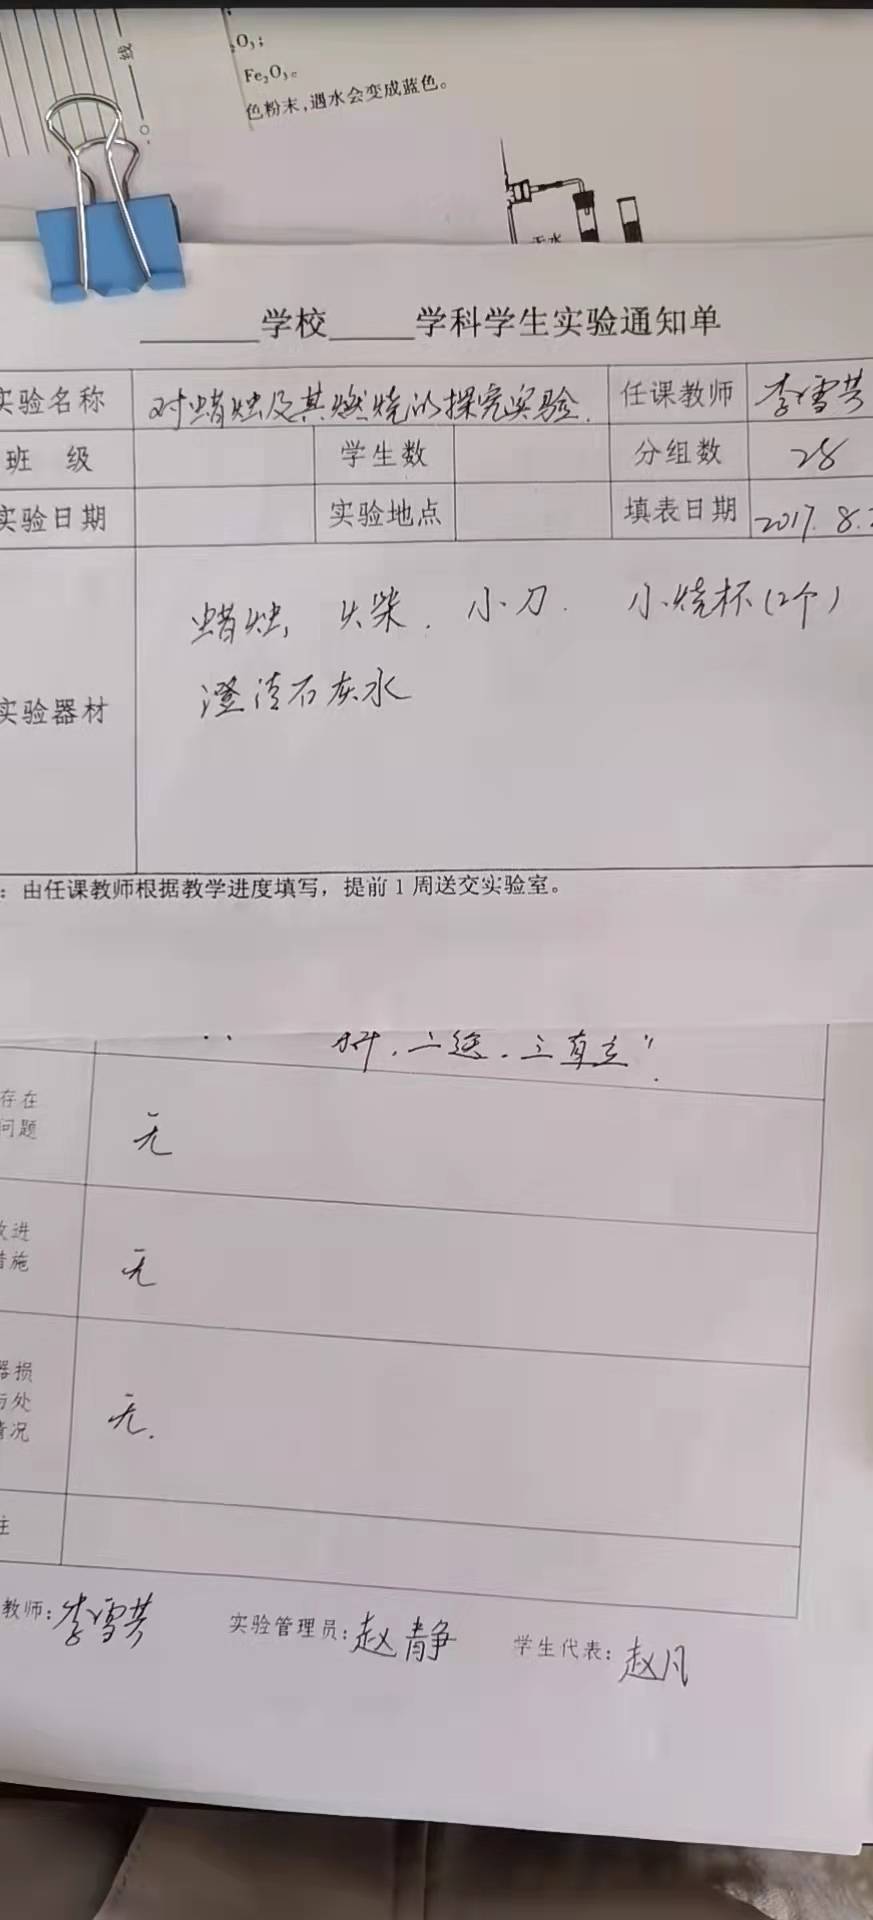 线
O₃；
Fe₂O₃。
色粉末，遇水会变成蓝色。
无水
______学校_____学科学生实验通知单
实验名称 对蜡烛及其燃烧的探究实验. 任课教师 李雪芳
班 级 学生数 分组数 28
实验日期 实验地点 填表日期 2017. 8.
蜡烛, 火柴. 小刀. 小烧杯(2个)
澄清石灰水
实验器材
：由任课教师根据教学进度填写，提前1周送交实验室。
二送.三直立".
存在
问题
无
改进
措施
无
器损
与处
情况
无.
注
教师:李雪芳 实验管理员:赵静 学生代表:赵凡